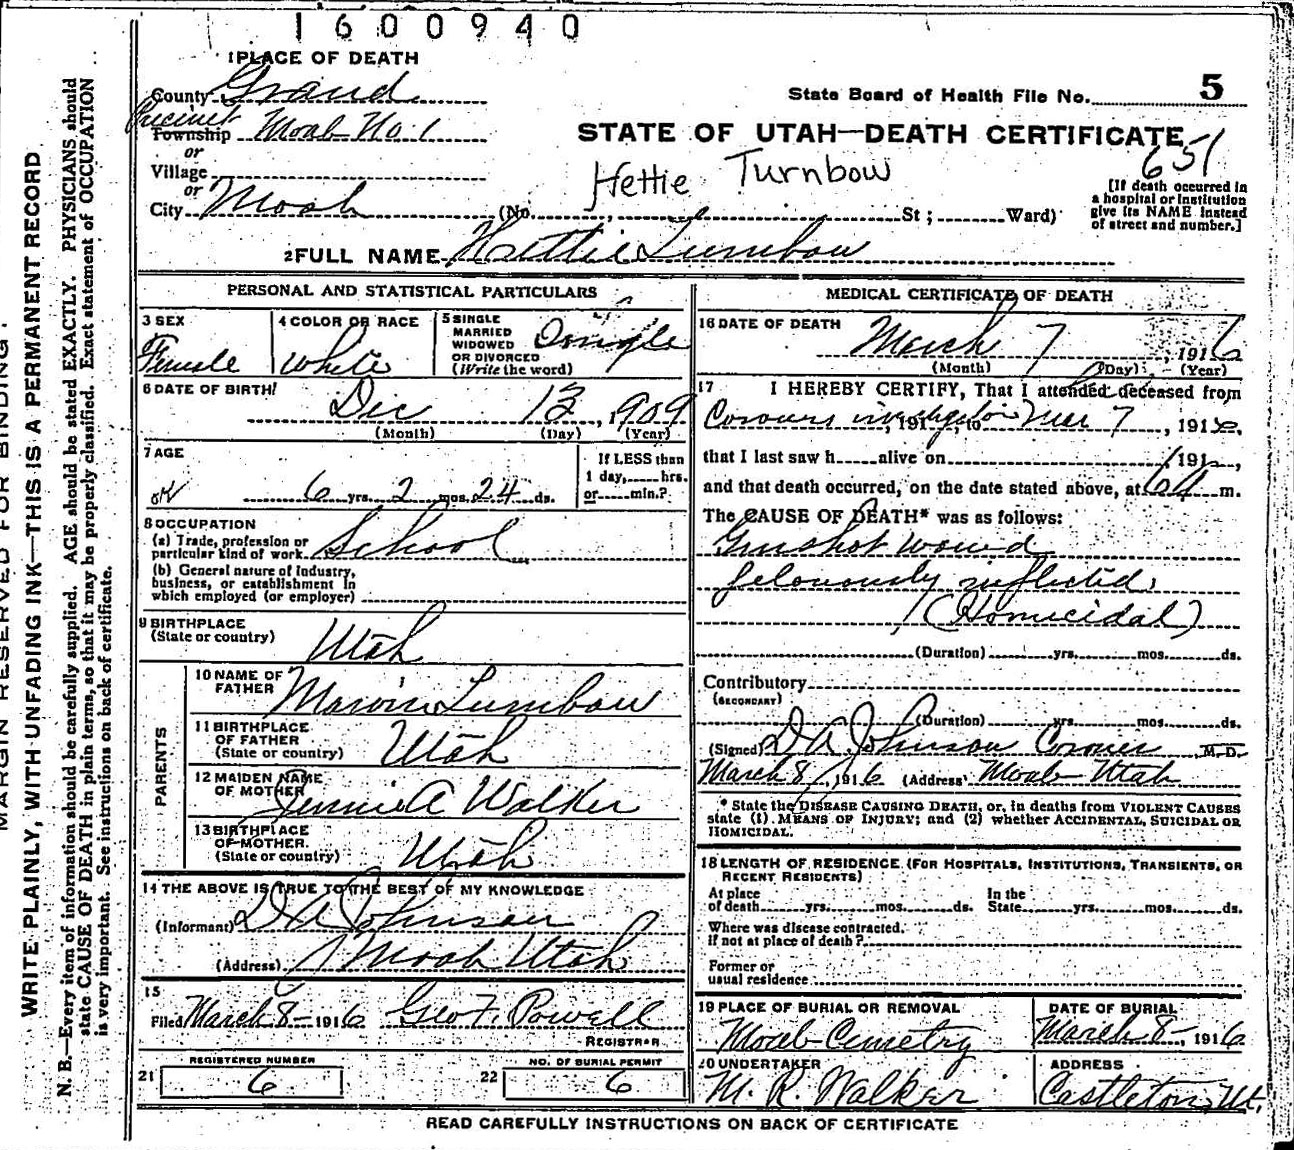 1600940
1 PLACE OF DEATH
County Grand
State Board of Health File No. 5
Precinct
Township Moab No. 1
STATE OF UTAH—DEATH CERTIFICATE
651
or
Village
Hettie Turnbow
or
City Moab (No. , St; Ward)
[If death occurred in
a hospital or institution
give its NAME instead
of street and number.]
2 FULL NAME Hettie Turnbow
PERSONAL AND STATISTICAL PARTICULARS
3 SEX
Female
4 COLOR OR RACE
White
5 SINGLE
MARRIED
WIDOWED
OR DIVORCED
(Write the word)
Single
6 DATE OF BIRTH
Dec 13, 1909
(Month) (Day) (Year)
7 AGE
OK 6 yrs. 2 mos. 24 ds.
If LESS than
1 day, hrs.
or min.?
8 OCCUPATION
(a) Trade, profession or
particular kind of work School
(b) General nature of Industry,
business, or establishment in
which employed (or employer)
9 BIRTHPLACE
(State or country) Utah
PARENTS
10 NAME OF
FATHER Marvin Turnbow
11 BIRTHPLACE
OF FATHER
(State or country) Utah
12 MAIDEN NAME
OF MOTHER Jennie A Walker
13 BIRTHPLACE
OF MOTHER.
(State or country) Utah
14 THE ABOVE IS TRUE TO THE BEST OF MY KNOWLEDGE
(Informant) D A Johnson
(Address) Moab Utah
15
Filed March 8- 1916 Geo F. Powell
REGISTRAR
21 REGISTERED NUMBER
6
22 NO. OF BURIAL PERMIT
6
MEDICAL CERTIFICATE OF DEATH
16 DATE OF DEATH
March 7, 1916
(Month) (Day) (Year)
17 I HEREBY CERTIFY, That I attended deceased from
Coroners investigation, 191 , to Mar 7, 1916,
that I last saw h alive on 191 ,
and that death occurred, on the date stated above, at 6 m.
The CAUSE OF DEATH* was as follows:
Gunshot wound
feloniously inflicted,
(Homicidal)
(Duration) yrs. mos. ds.
Contributory
(SECONDARY)
(Duration) yrs. mos. ds.
(Signed) D A Johnson Coroner M.D.
March 8, 1916 (Address) Moab Utah
* State the DISEASE CAUSING DEATH, or, in deaths from VIOLENT CAUSES
state (1) MEANS OF INJURY; and (2) whether ACCIDENTAL, SUICIDAL OR
HOMICIDAL.
18 LENGTH OF RESIDENCE (FOR HOSPITALS, INSTITUTIONS, TRANSIENTS, OR
RECENT RESIDENTS)
At place
of death yrs. mos. ds.
In the
State yrs. mos. ds.
Where was disease contracted,
if not at place of death?
Former or
usual residence
19 PLACE OF BURIAL OR REMOVAL
Moab Cemetry
DATE OF BURIAL
March 8-, 1916
20 UNDERTAKER
M. R. Walker
ADDRESS
Castleton, Ut.
READ CAREFULLY INSTRUCTIONS ON BACK OF CERTIFICATE
MARGIN RESERVED FOR BINDING.
WRITE PLAINLY, WITH UNFADING INK—THIS IS A PERMANENT RECORD
N. B.—Every item of information should be carefully supplied. AGE should be stated EXACTLY. PHYSICIANS should
state CAUSE OF DEATH in plain terms, so that it may be properly classified. Exact statement of OCCUPATION
is very important. See instructions on back of certificate.